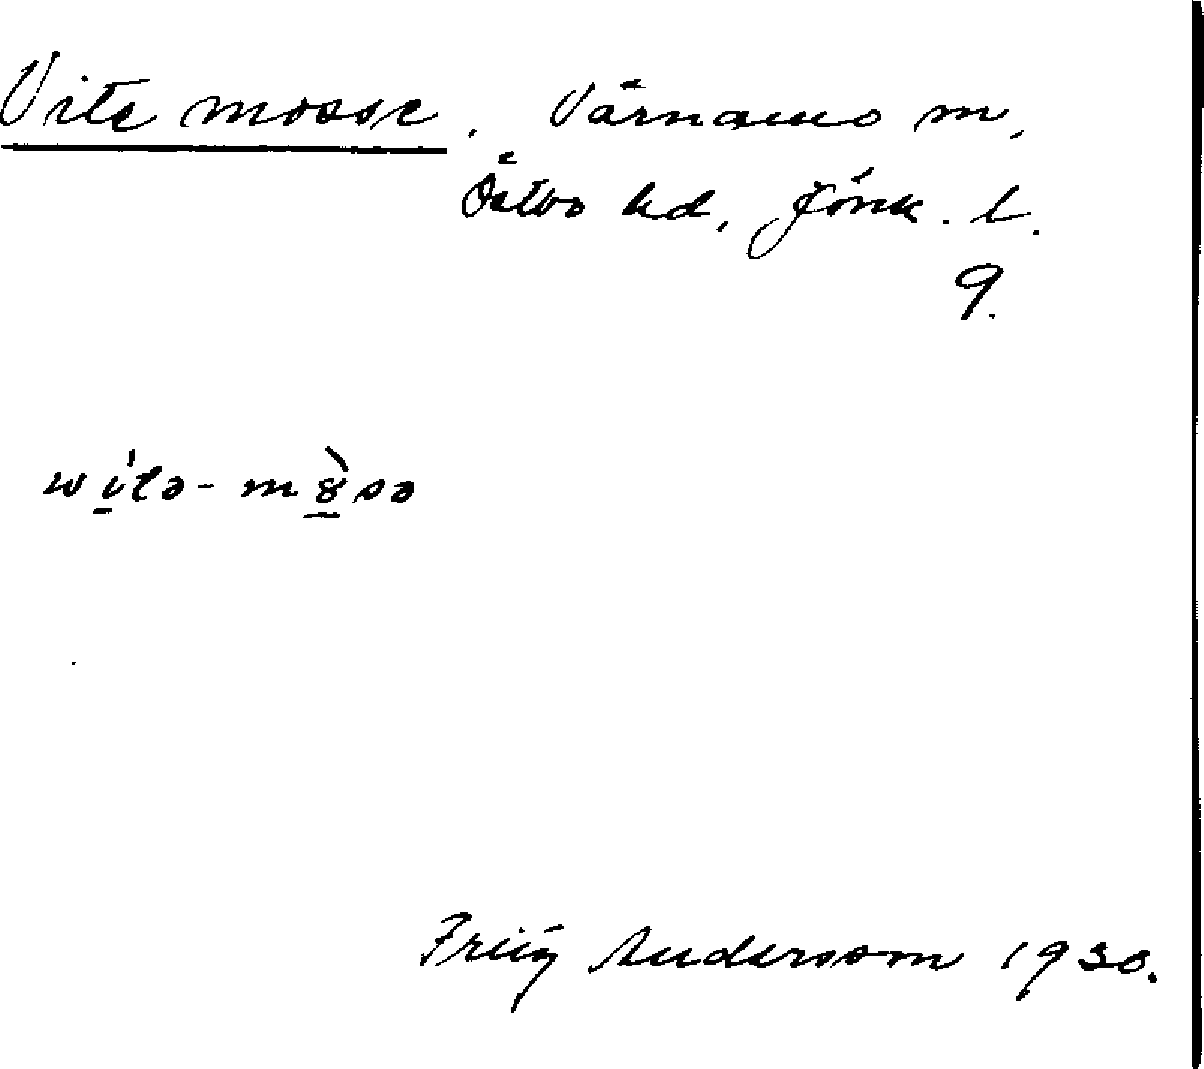 Vite mosse. Värnamo sn,
Östbo hd, Jönk. l.
9.
wi̱tə-mo̱sə
Frtig Andersson 1930.